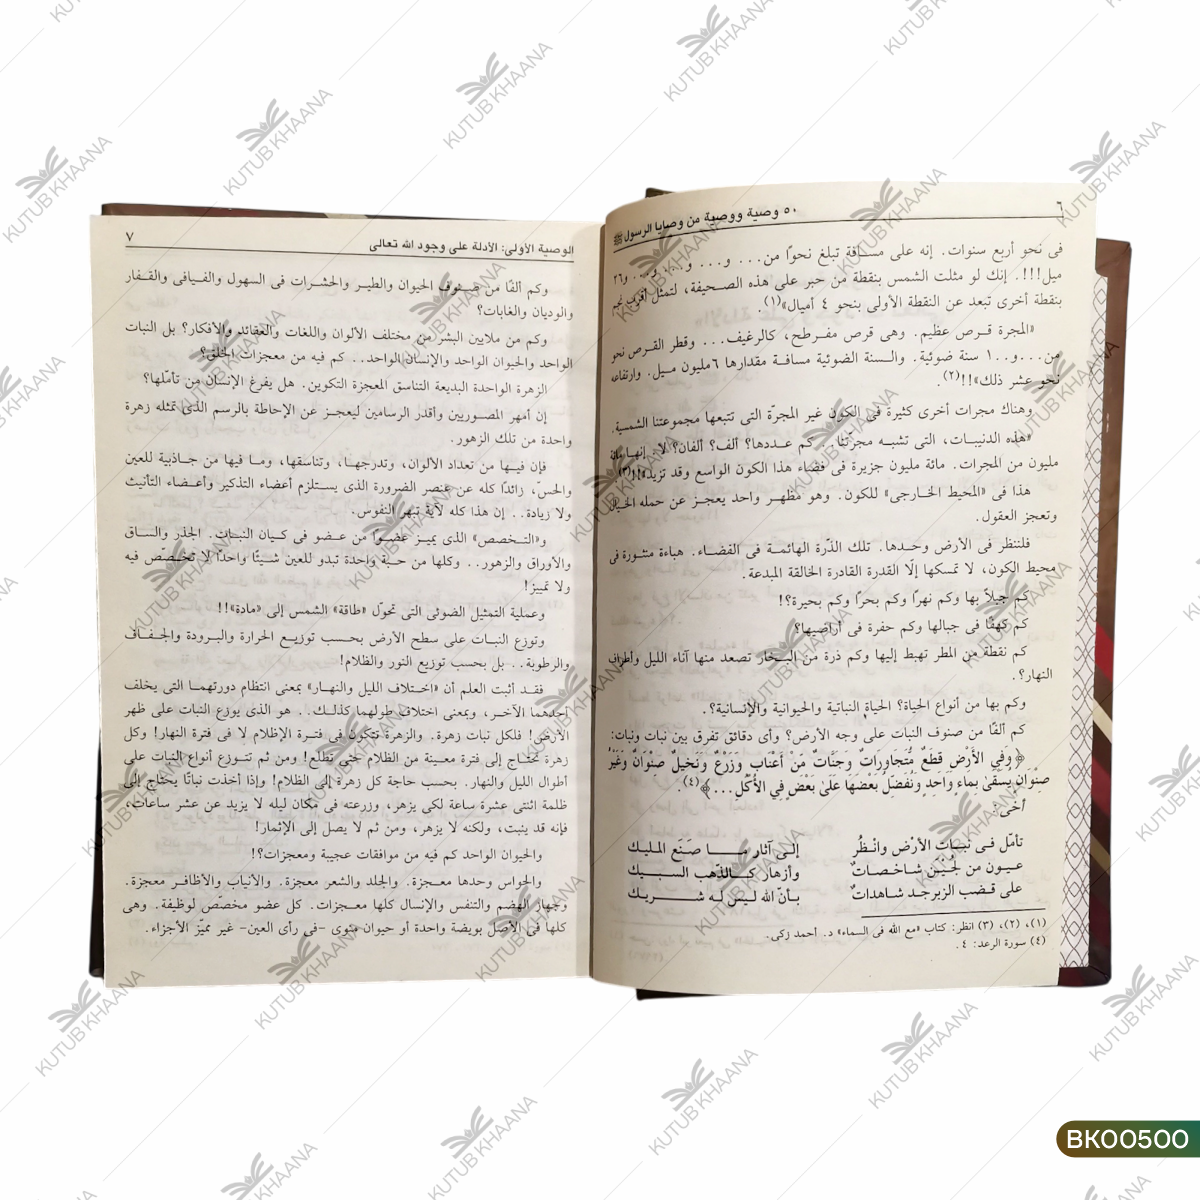 ٦
٥٠ وصية ووصية من وصايا الرسول ﷺ
فى نحو أربع سنوات. إنه على مسافة تبلغ نحوًا من... و... و... و... و٢٦
ميل!!!. إنك لو مثلت الشمس بنقطة من حبر على هذه الصحيفة، لتمثل أقرب نجم
بنقطة أخرى تبعد عن النقطة الأولى بنحو ٤ أميال»(١).
«المجرة قرص عظيم. وهى قرص مفرطح، كالرغيف... وقطر القرص نحو
من...و١٠٠ سنة ضوئية. والسنة الضوئية مسافة مقدارها ٦مليون ميل. وارتفاعه
نحو عشر ذلك»!!(٢).
وهناك مجرات أخرى كثيرة فى الكون غير المجرّة التى تتبعها مجموعتنا الشمسية.
«هذه الدنييات، التى تشبه مجرّتنا. كم عددها؟ ألف؟ ألفان؟ لا. إنها مائة
مليون من المجرات. مائة مليون جزيرة فى فضاء هذا الكون الواسع وقد تزيد»!!(٣)
هذا فى «المحيط الخارجى» للكون. وهو مظهر واحد يعجز عن حمله الخيال
وتعجز العقول.
فلننظر فى الأرض وحدها. تلك الذّرة الهائمة فى الفضاء. هباءة منثورة فى
محيط الكون، لا تمسكها إلّا القدرة القادرة الخالقة المبدعة.
كم جبلاً بها وكم نهرًا وكم بحرًا وكم بحيرة؟!
كم كهفًا فى جبالها وكم حفرة فى أراضيها؟
كم نقطة من المطر تهبط إليها وكم ذرة من البخار تصعد منها آناء الليل وأطراف
النهار؟.
وكم بها من أنواع الحياة؟ الحياة النباتية والحيوانية والإنسانية؟.
كم ألفًا من صنوف النبات على وجه الأرض؟ وأى دقائق تفرق بين نبات ونبات:
﴿وَفِي الأَرْضِ قِطَعٌ مُّتَجَاوِرَاتٌ وَجَنَّاتٌ مِّنْ أَعْنَابٍ وَزَرْعٌ وَنَخِيلٌ صِنْوَانٌ وَغَيْرُ
صِنْوَانٍ يُسْقَىٰ بِمَاءٍ وَاحِدٍ وَنُفَضِّلُ بَعْضَهَا عَلَىٰ بَعْضٍ فِي الأُكُلِ...﴾(٤).
أخى:
تأمّل فى نبات الأرْض وانظُر إلى آثار ما صنع المليك
عيون من لُجيْن شاخصاتٌ وأزهار كالذّهب السبيك
على قضب الزبرجد شاهداتٌ بأنّ الله ليس له شريك
(١)، (٢)، (٣) انظر: كتاب «مع الله فى السماء» د. أحمد زكى.
(٤) سورة الرعد: ٤.
الوصية الأولى: الأدلة على وجود الله تعالى
٧
وكم ألفًا من صنوف الحيوان والطير والحشرات فى السهول والفيافى والقفار
والوديان والغابات؟
وكم من ملايين البشر من مختلف الألوان واللغات والعقائد والأفكار؟ بل النبات
الواحد والحيوان الواحد والإنسان الواحد.. كم فيه من معجزات الخلق؟
الزهرة الواحدة البديعة التناسق المعجزة التكوين. هل يفرغ الإنسان من تأملها؟
إن أمهر المصوريين وأقدر الرسامين ليعجز عن الإحاطة بالرسم الذى تمثله زهرة
واحدة من تلك الزهور.
فإن فيها من تعداد الألوان، وتدرجها، وتناسقها، وما فيها من جاذبية للعين
والحسّ، زائدًا كله عن عنصر الضرورة الذى يستلزم أعضاء التذكير وأعضاء التأنيث
ولا زيادة.. إن هذا كله لآية تبهر النفوس.
و«التخصص» الذى يميز عضوًا من عضو فى كيان النبات. الجذر والساق
والأوراق والزهور.. وكلها من حبة واحدة تبدو للعين شيئًا واحدًا لا تخصّص فيه
ولا تمييز!
وعملية التمثيل الضوئى التى تحوّل «طاقة» الشمس إلى «مادة»!!
وتوزع النبات على سطح الأرض بحسب توزيع الحرارة والبرودة والجفاف
والرطوبة.. بل بحسب توزيع النور والظلام!
فقد أثبت العلم أن «اختلاف الليل والنهار» بمعنى انتظام دورتهما التى يخلف
أحدهما الآخر، وبمعنى اختلاف طولهما كذلك.. هو الذى يوزع النبات على ظهر
الأرض! فلكل نبات زهرة. والزهرة تتكون فى فترة الإظلام لا فى فترة النهار! وكل
زهرة تحتاج إلى فترة معينة من الظلام حتى تطلع! ومن ثم تتوزع أنواع النبات على
أطوال الليل والنهار. بحسب حاجة كل زهرة إلى الظلام! وإذا أخذت نباتًا يحتاج إلى
ظلمة اثنتى عشرة ساعة لكى يزهر، وزرعته فى مكان ليله لا يزيد عن عشر ساعات،
فإنه قد ينبت، ولكنه لا يزهر، ومن ثم لا يصل إلى الإثمار!
والحيوان الواحد كم فيه من موافقات عجيبة ومعجزات؟!
والحواس وحدها معجزة. والجلد والشعر معجزة. والأنياب والأظافر معجزة.
وجهاز الهضم والتنفس والإنسال كلها معجزات. كل عضو مخصّص لوظيفة. وهى
كلها فى الأصل بويضة واحدة أو حيوان منوى -فى رأى العين- غير مميّز الأجزاء.
KUTUB KHAANA
BK00500